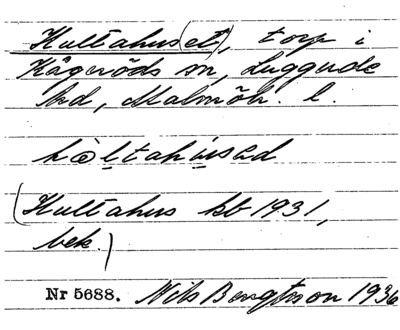 Hultahus(et), torp i
Kågeröds sn, Luggude
hd, Malmöh. l.
hòltahùsəd
(Hultahus kb 1931,
bek.)
Nr 5688. Nils Bengtsson 1936